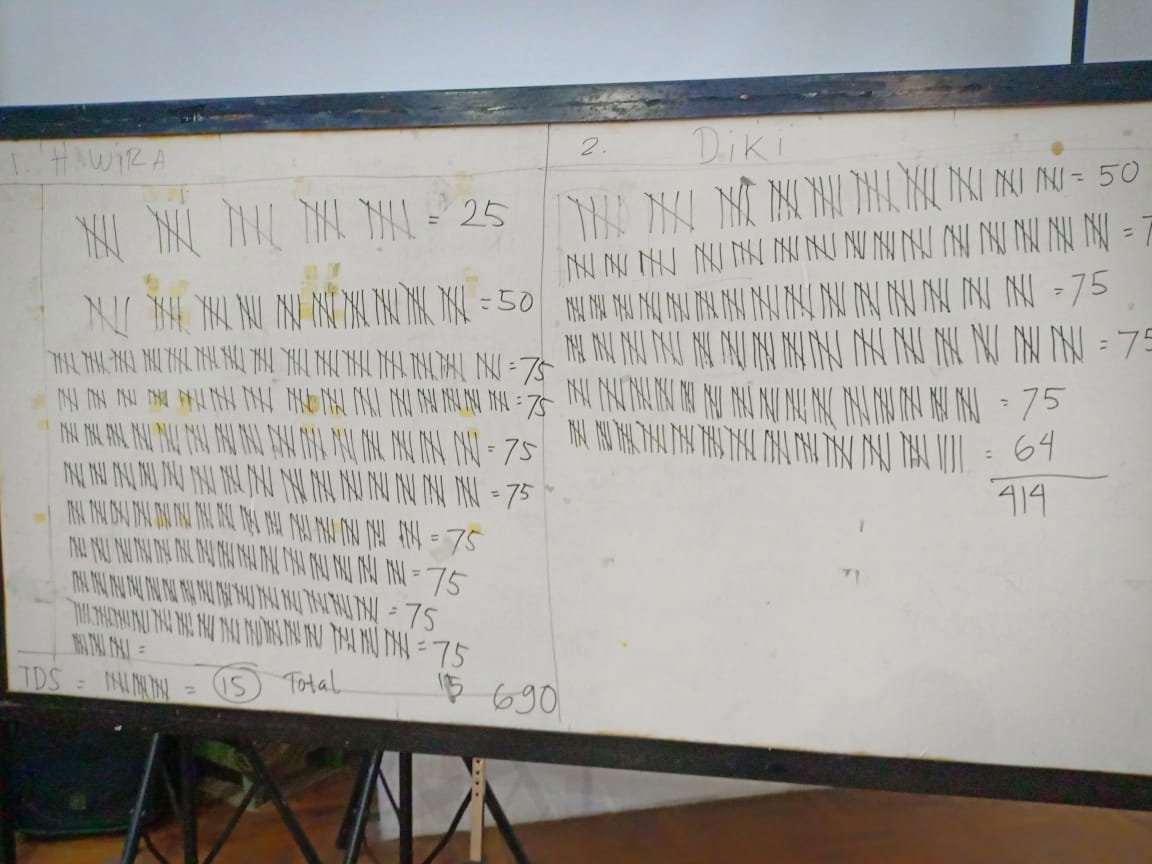 1. H. WIRA
= 25
= 50
= 75
= 75
= 75
= 75
= 75
= 75
= 75
= 75
=
15
TDS = = 15 Total 690
2. Diki
= 50
= 7
= 75
= 75
= 75
= 64
414